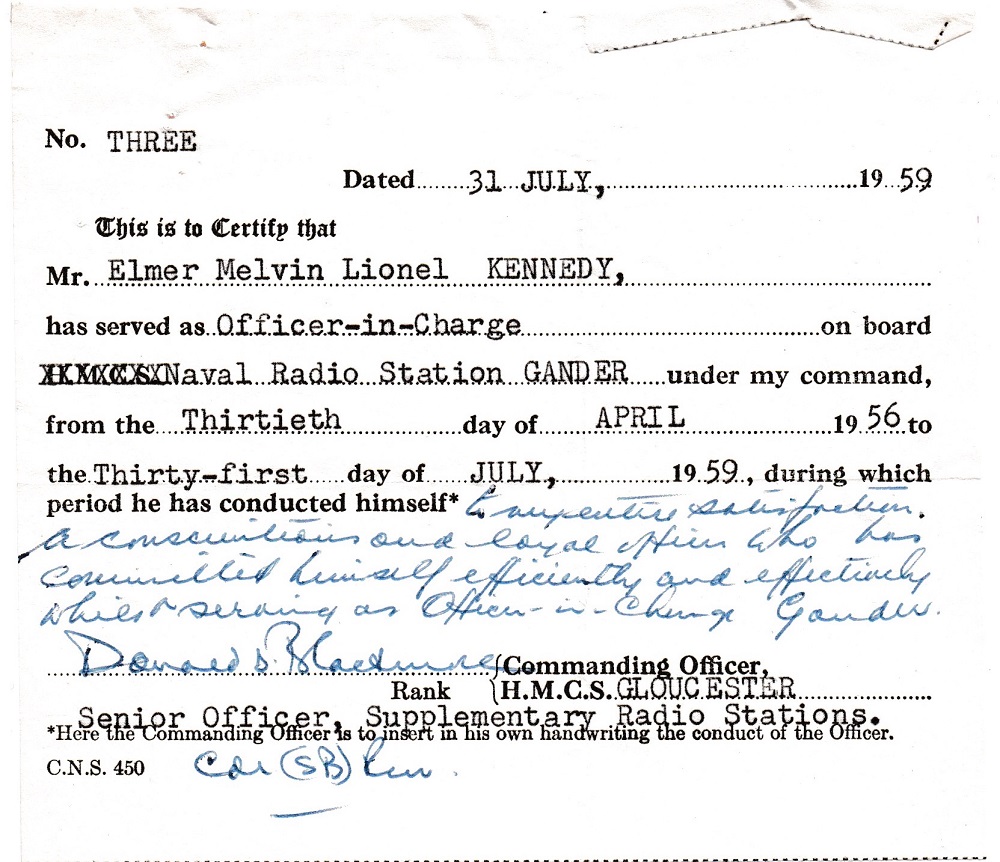 No. THREE
Dated 31 JULY, 19 59
This is to Certify that
Mr. Elmer Melvin Lionel KENNEDY,
has served as Officer-in-Charge on board
H.M.C.S. Naval Radio Station GANDER under my command,
from the Thirtieth day of APRIL 19 56 to
the Thirty-first day of JULY, 19 59, during which
period he has conducted himself* to my entire satisfaction.
A conscientious and loyal officer who has
committed himself efficiently and effectively
whilst serving as Officer-in-Charge Gander.
Donald S. Blackmore Commanding Officer,
Rank H.M.C.S. GLOUCESTER
Senior Officer, Supplementary Radio Stations.
*Here the Commanding Officer is to insert in his own handwriting the conduct of the Officer.
C.N.S. 450 Cdr (SB)